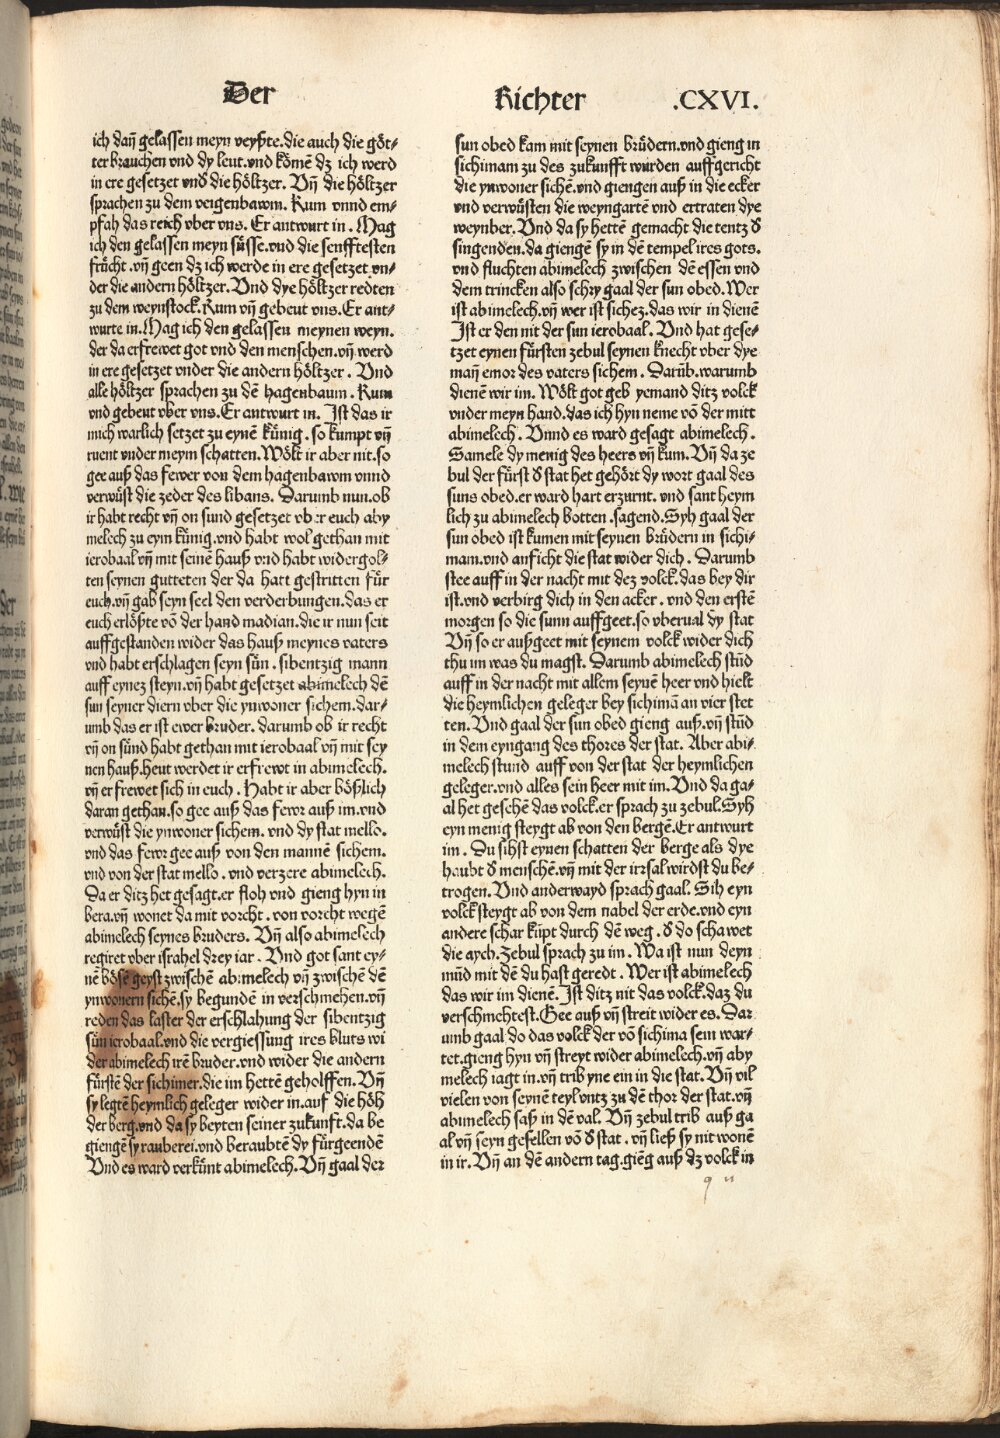 Der
Richter
.CXVI.
ich dañ gelassen meyn veyßte.die auch die göt⸗
ter brauchen vnd dy leut.vnd kömē dz ich werd
in ere gesetzet vnđ die höltzer. Vñ die höltzer
sprachen zu dem veigenbawm. Kum vnnd em⸗
pfah das reich vber vns. Er antwurt in. Mag
ich den gelassen meyn süsse.vnd die senfftesten
frücht.vñ geen dz ich werde in ere gesetzet vn⸗
der die andern höltzer. Vnd dye höltzer redten
zu dem weynstock.Kum vñ gebeut vns.Er ant⸗
wurte in.Mag ich den gelassen meynen weyn.
der da erfrewet got vnd den menschen.vñ werd
in ere gesetzet vnder die andern höltzer. Vnd
alle höltzer sprachen zu dē hagenbaum. Kum
vnd gebeut vber vns.Er antwurt in. Ist das ir
mich warlich setzet zu eynē künig.so kumpt vñ
ruent vnder meym schatten.Wölt ir aber nit.so
gee auß das fewer von dem hagenbawm vnnd
verwüst die zeder des libans. Darumb nun.ob
ir habt recht vñ on sund gesetzet vber euch aby
melech zu eym künig.vnd habt wol gethan mit
ierobaal vñ mit seinē hauß vnd habt widergol⸗
ten seynen gutteten der da hatt gestritten für
euch.vñ gab seyn seel den verderbungen.das er
euch erlößte vō der hand madian.die ir nun seit
auffgestanden wider das hauß meynes vaters
vnd habt erschlagen seyn sün. sibentzig mann
auff eynez steyn.vñ habt gesetzet abimelech dē
sun seyner diern vber die ynwoner sichem.dar⸗
umb das er ist ewer bruder. darumb ob ir recht
vñ on sünd habt gethan mit ierobaal vñ mit sey
nen hauß.heut werdet ir erfrewt in abimelech.
vñ er frewet sich in euch. Habt ir aber bößlich
daran gethan.so gee auß das fewr auß im.vnd
verwüst die ynwoner sichem. vnd dy stat mello.
vnd das fewr gee auß von den mannē sichem.
vnd von der stat mello. vnd verzere abimelech.
Da er ditz het gesagt.er floh vnd gieng hyn in
bera.vñ wonet da mit vorcht. von vorcht wegē
abimelech seynes bruders. Vñ also abimelech
regiret vber israhel drey iar. Vnd got sant ey⸗
nē bösē geyst zwischē abimelech vñ zwischē dē
ynwonern sichē.sy begundē in verschmehen.vñ
reden das laster der erschlahung der sibentzig
sün ierobaal.vnd die vergiessung ires bluts wi
der abimelech irē bruder.vnd wider die andern
fürstē der sichimer.die im hettē geholffen. Vñ
sy legtē heymlich geleger wider in.auf die höh
der berg.vnd da sy beyten seiner zukunft.da be
giengē sy rauberei.vnd beraubtē dy fürgeendē
Vnd es ward verkünt abimelech. Vñ gaal der
sun obed kam mit seynen brüdern.vnd gieng in
sichimam zu des zukunfft wurden auffgericht
die ynwoner sichē.vnd giengen auß in die ecker
vnd verwüsten die weyngartē vnd ertraten dye
weynber. Vnd da sy hettē gemacht die tentz đ
singenden.da giengē sy in dē tempel ires gots.
vnd fluchten abimelech zwischen dē essen vnd
dem trincken also schry gaal der sun obed. Wer
ist abimelech.vñ wer ist sichez.das wir in dienē
Ist er den nit der sun ierobaal. Vnd hat gese⸗
tzet eynen fürsten zebul seynen knecht vber dye
mañ emor des vaters sichem. Darūb.warumb
dienē wir im. Wölt got geb yemand ditz volck
vnder meyn hand.das ich hyn neme vō der mitt
abimelech. Vnnd es ward gesagt abimelech.
Samele dy menig des heers vñ kum. Vñ da ze
bul der fürst đ stat het gehört dy wort gaal des
suns obed.er ward hart erzurnt. vnd sant heym
lich zu abimelech botten.sagend.Syh gaal der
sun obed ist kumen mit seynen brüdern in sichi⸗
mam.vnd anficht die stat wider dich. Darumb
stee auff in der nacht mit dez volck.das bey dir
ist.vnd verbirg dich in den acker. vnd den erstē
morgen so die sunn auffgeet.so vberual dy stat
Vñ so er außgeet mit seynem volck wider dich
thu im was du magst. Darumb abimelech stūd
auff in der nacht mit allem seynē heer vnd hielt
die heymlichen geleger bey sichimā an vier stet
ten. Vnd gaal der sun obed gieng auß.vñ stūd
in dem eyngang des thores der stat. Aber abi⸗
melech stund auff von der stat der heymlichen
geleger.vnd alles sein heer mit im. Vnd da ga⸗
al het geschē das volck.er sprach zu zebul.Syh
eyn menig steygt ab von den bergē.Er antwurt
im. Du sihst eynen schatten der berge als dye
haubt đ menschē.vñ mit der irrsal wirdst du be⸗
trogen. Vnd anderwayd sprach gaal. Sih eyn
volck steygt ab von dem nabel der erde.vnd eyn
andere schar kūpt durch dē weg. đ do schawet
die aych. Zebul sprach zu im. Wa ist nun deyn
mūd mit dē du hast geredt. Wer ist abimelech
das wir im dienē.Ist ditz nit das volck.daz du
verschmehtest.Gee auß vñ streit wider es. Dar
umb gaal do das volck der vō sichima sein war⸗
tet.gieng hyn vñ streyt wider abimelech.vñ aby
melech iagt in.vñ trib yne ein in die stat. Vñ vil
vielen von seynē teyl vntz zu dē thor der stat.vñ
abimelech saß in dē val. Vñ zebul trib auß ga
al vñ seyn gesellen vō đ stat. vñ ließ sy nit wonē
in ir. Vñ an dē andern tag.giēg auß dz volck in